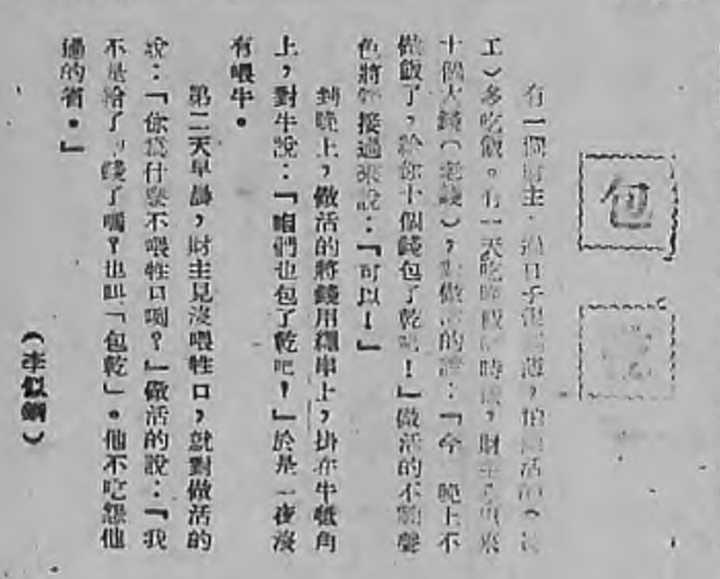 包
有一個財主，過日子很薄，怕活的（
工）多吃飯。有一天吃晚飯時候，財主出來
十個大錢（老錢），對做活的說：「今晚上不
做飯了，給你十個錢包了乾吧！」做活的不動聲
色將錢接過來說：「可以！」
到晚上，做活的將錢用繩串上，掛在牛犄角
上，對牛說：「咱們也包了乾吧！」於是一夜沒
有喂牛。
第二天早晨，財主見沒喂牲口，就對做活的
說：「你爲什麼不喂牲口呢？」做活的說：「我
不是給了錢了嗎？也叫「包乾」。他不吃怨他
過的省。」
（李似）